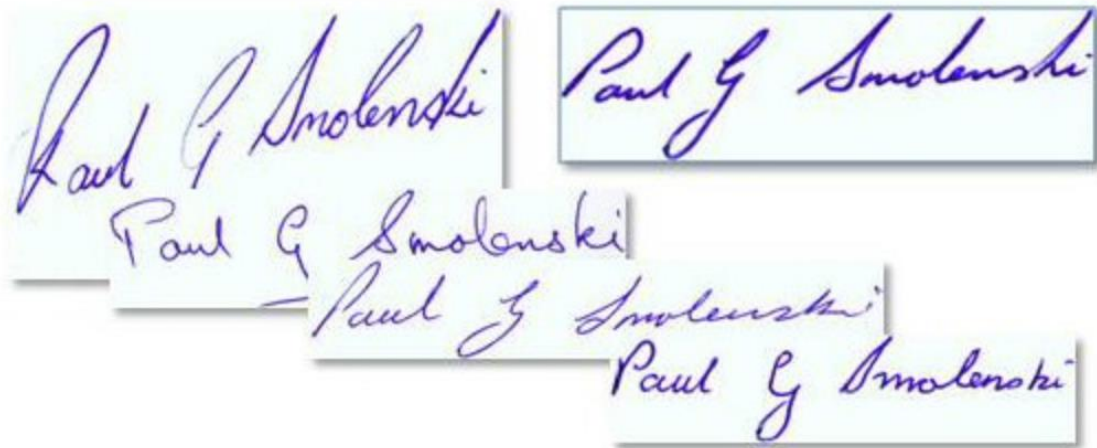 Paul G Smolenski
Paul G Smolenski
Paul G Smolenski
Paul G Smolenski
Paul G Smolenski